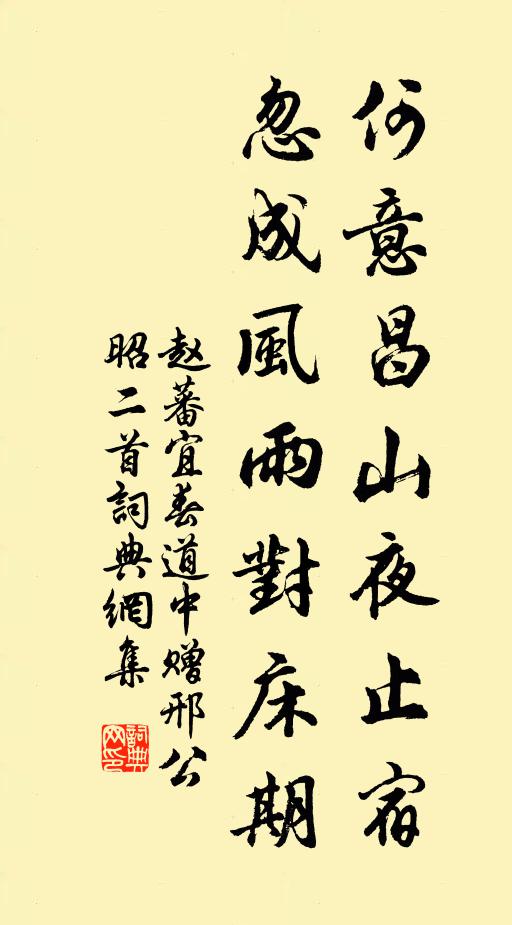 何意昌山夜止宿
忽成風雨對床期
赵蕃宜春道中赠邢公
昭二首詞典網集
詞典网印